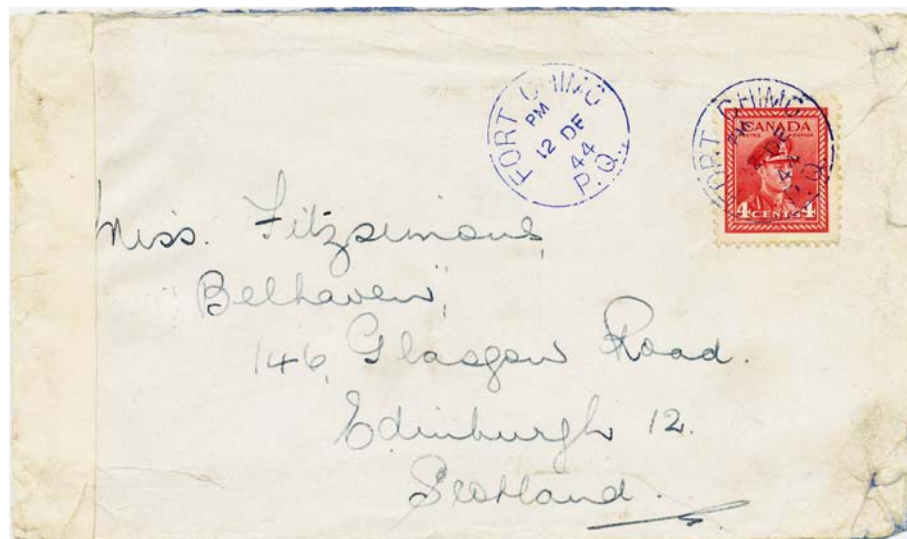 FORT CHIMO
PM
12 DE
44
P.Q.
FORT CHIMO
PM
12 DE
44
P.Q.
CANADA
POSTES POSTAGE
4 CENTS 4
Miss. Fitzsimons,
Belhaven,
146, Glasgow Road.
Edinburgh 12.
Scotland.